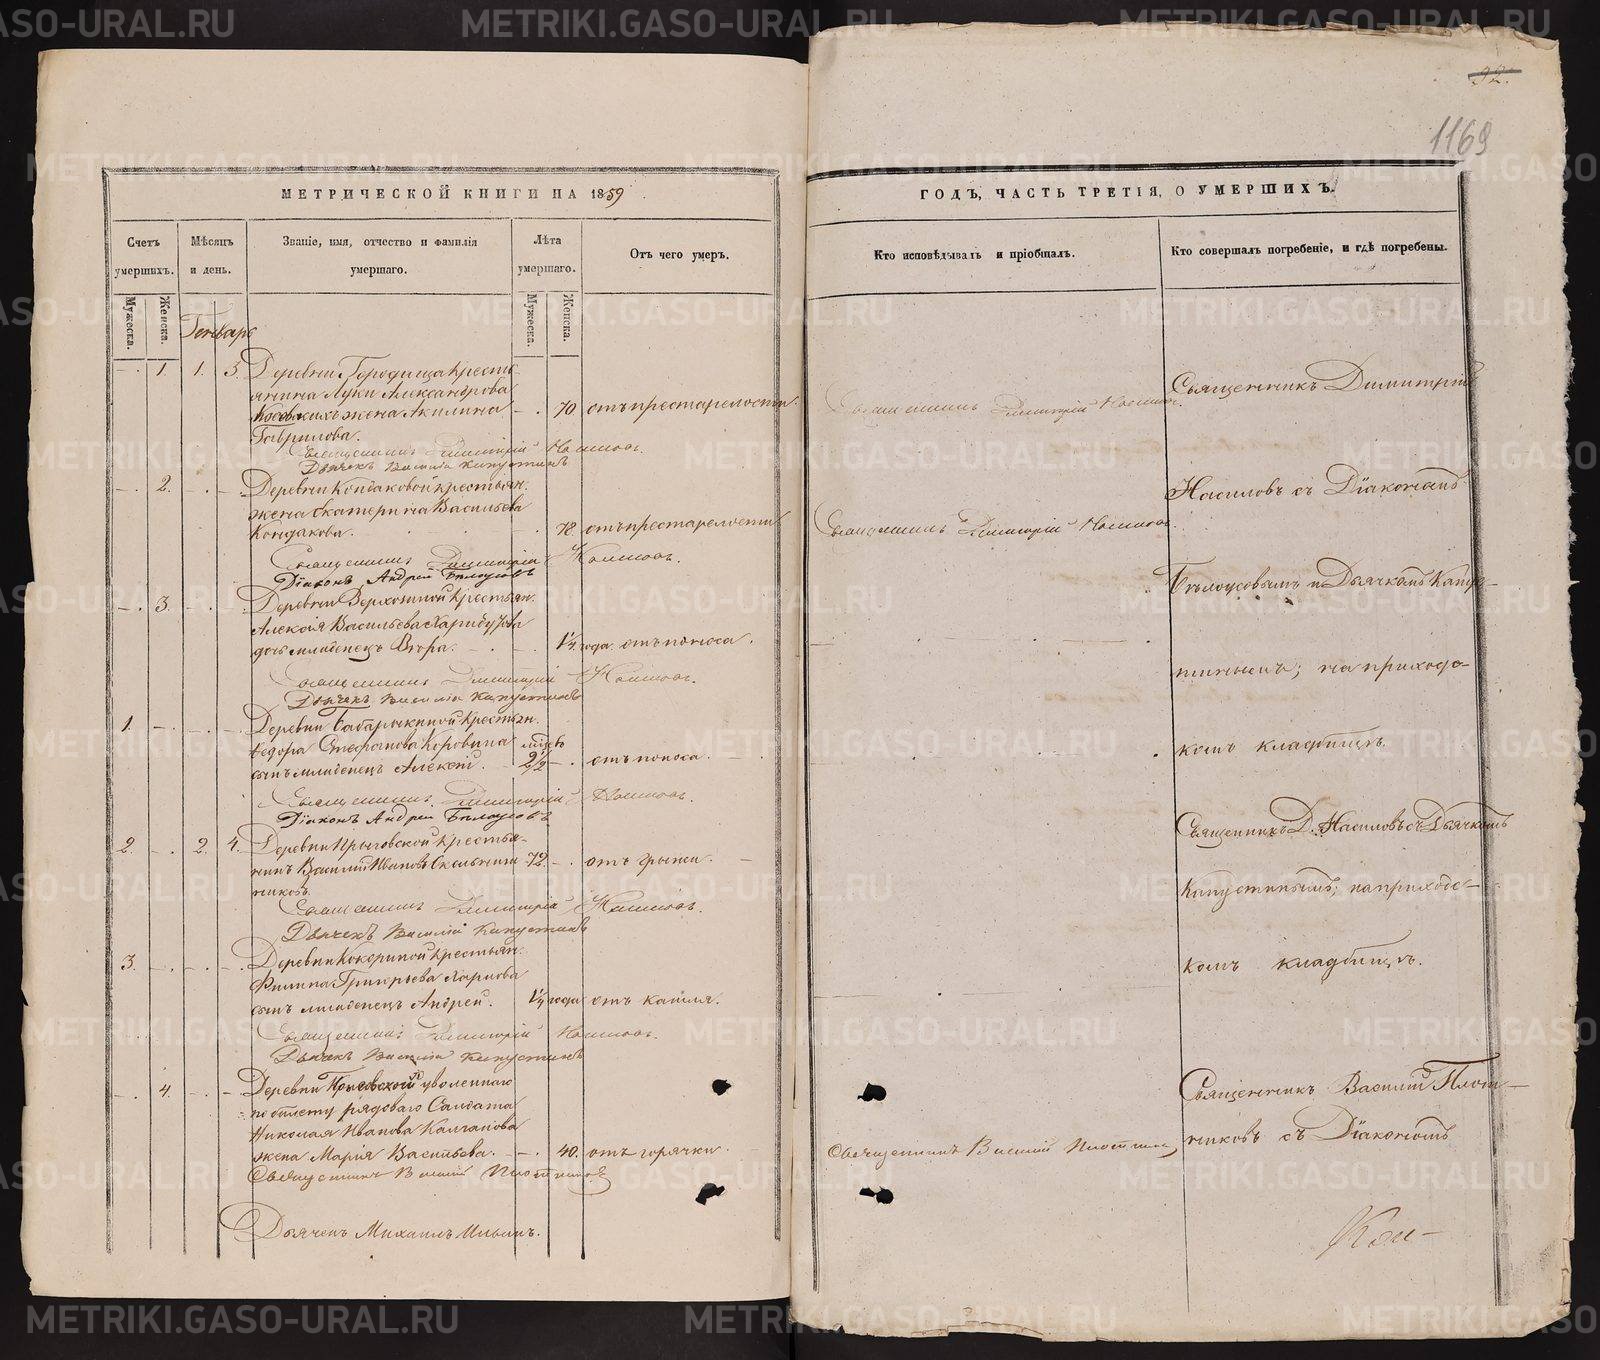 METRIKI.GASO-URAL.RU
92.
1169
МЕТРИЧЕСКОЙ КНИГИ НА 1859
Счетъ умершихъ.
Мѣсяцъ и день.
Званіе, имя, отчество и фамилія умершаго.
Лѣта умершаго.
Отъ чего умеръ.
Мужеска.
Женска.
Мужеска.
Женска.
Генварь
1. 1. 3. Деревни Городища крестья-
янина Луки Александрова
жена Акилина 70 отъ престарелости.
Гаврилова.
Священникъ Димитрій Насиловъ.
Дьячекъ Василій Капустинъ
2. Деревни Кондаковой крестьян.
жена Екатерина Васильева
Кондакова. 78. отъ престарелости
Священникъ Димитрій Насиловъ.
Діаконъ Андрей Бѣлоусовъ
3. Деревни Верхозиной крестьян.
Алексія Васильева
дочь младенецъ Вѣра. 1/4 года. отъ поноса.
Священникъ Димитрій Насиловъ.
Дьячекъ Василій Капустинъ
1. Деревни Бабарыкиной крестьян.
Ѳедора Стефанова Коровина
сынъ младенецъ Алексій. 2/2 отъ поноса.
Священникъ Димитрій Насиловъ.
Діаконъ Андрей Бѣлоусовъ
2. 2. 4. Деревни крестья-
нинъ Василій Ивановъ 72. отъ грыжи.
никовъ.
Священникъ Димитрій Насиловъ.
Дьячекъ Василій Капустинъ
3. Деревни Кокориной крестьян.
Филипа Григорьева Карпова
сынъ младенецъ Андрей. 1/4 года отъ кашля.
Священникъ Димитрій Насиловъ.
Дьячекъ Василій Капустинъ
4. Деревни уволеннаго
по билету рядоваго Салдата
Николая Иванова Калганова
жена Марія Васильева. 40. отъ горячки.
Священникъ Василій Плотниковъ
Дьячекъ Михаилъ Ильинъ.
ГОДЪ, ЧАСТЬ ТРЕТІЯ, О УМЕРШИХЪ.
Кто исповѣдывалъ и пріобщалъ.
Кто совершалъ погребеніе, и гдѣ погребены.
Священникъ Димитрій Насилов.
Священникъ Димитрій Насиловъ.
Священникъ Василій Плотников
Священникъ Димитрій
Насиловъ съ Діакономъ
Бѣлоусовымъ и Дьячкомъ Капус-
тинымъ; на приходс-
комъ кладбищѣ.
Священникъ Д. Насиловъ съ Дьячкомъ
Капустинымъ; на приходс-
комъ кладбищѣ.
Священникъ Василій Плот-
никовъ съ Діакономъ
Кон-